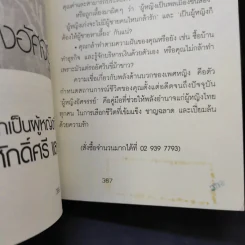 หรือถูกเลี้ยงมาผิดๆ ว่า ผู้หญิงเป็นเพศอ่อนแอ
ผู้หญิงเก่งไม่มีผู้ชายคนไหนกล้ารัก และ เป็นผู้หญิงก็
ให้ผู้ชายหาเลี้ยง" กันแน่?
• คุณกล้าทำตามความฝันของคุณหรือยัง เช่น ซื้อบ้าน
ทำธุรกิจ และรู้จักบริหารเงินด้วยตัวเอง หรือคุณไม่กล้าทำ
ความเชื่อเกี่ยวกับพลังด้านบวกของเพศหญิง คือตัว
กำหนดสถานการณ์ชีวิตของคุณตั้งแต่อดีตจนถึงปัจจุบัน
ผู้หญิงอัศจรรย์ คือคู่มือที่ช่วยให้พลังอำนาจแก่ผู้หญิงไทย
ทุกคน ในการเลือกชีวิตที่เข้มแข็ง ชาญฉลาด และเปี่ยมล้น
ด้วยความรัก
(สั่งซื้อจำนวนมากได้ที่ 02 939 7793)
367
งอัศจ
เป็นผู้หญิง
ักดิ์ศรี แล